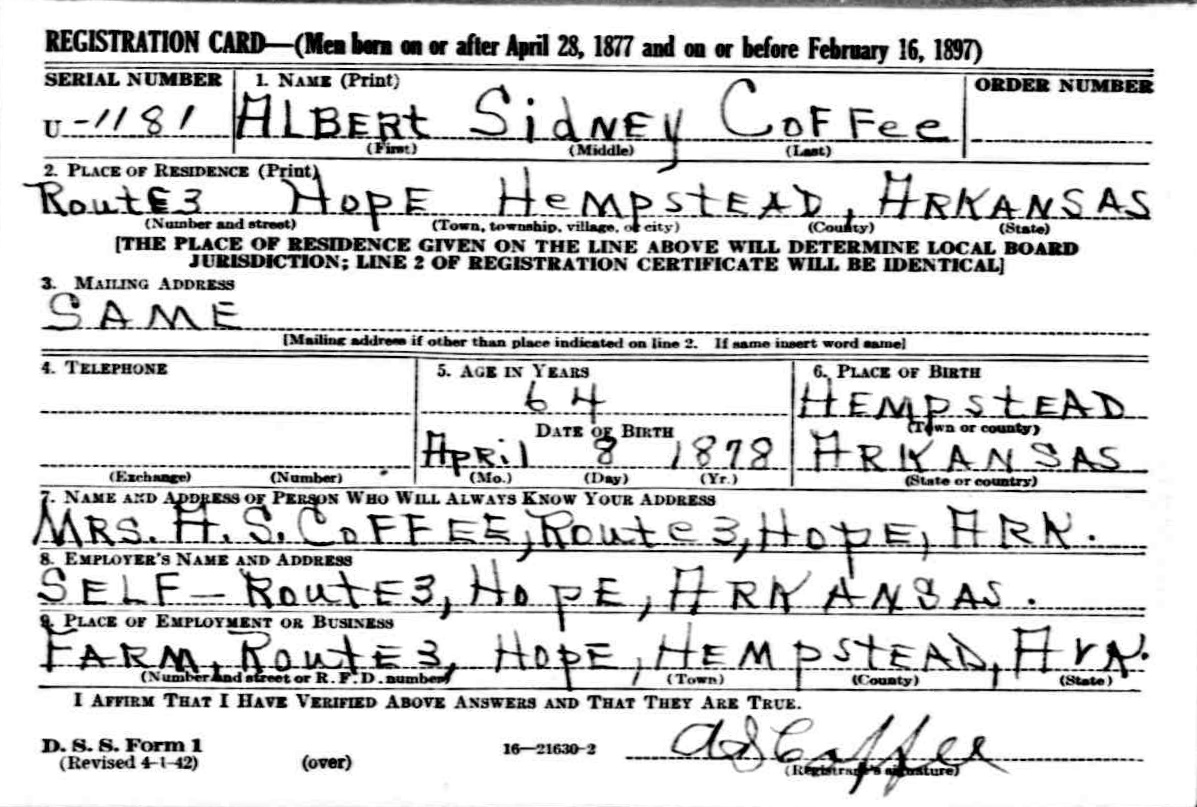 REGISTRATION CARD—(Men born on or after April 28, 1877 and on or before February 16, 1897)
SERIAL NUMBER 1. NAME (Print) ORDER NUMBER
U -1181 ALBERt SidNEy CoFFee
(First) (Middle) (Last)
2. PLACE OF RESIDENCE (Print)
RoutE3 HopE HeMpstEAD, ARKANSAS
(Number and street) (Town, township, village, or city) (County) (State)
[THE PLACE OF RESIDENCE GIVEN ON THE LINE ABOVE WILL DETERMINE LOCAL BOARD
JURISDICTION; LINE 2 OF REGISTRATION CERTIFICATE WILL BE IDENTICAL]
3. MAILING ADDRESS
SAME
[Mailing address if other than place indicated on line 2. If same insert word same]
4. TELEPHONE 5. AGE IN YEARS 6. PLACE OF BIRTH
64 HEMpstEAD
DATE OF BIRTH (Town or county)
ApRil 8 1878 ARKANSAS
(Exchange) (Number) (Mo.) (Day) (Yr.) (State or country)
7. NAME AND ADDRESS OF PERSON WHO WILL ALWAYS KNOW YOUR ADDRESS
MRS. A. S. CoFFEE, Route3, HopE, ARK.
8. EMPLOYER'S NAME AND ADDRESS
SELF - RoutE3, HopE, ARKANSAS.
9. PLACE OF EMPLOYMENT OR BUSINESS
FARM, RoutE3, HopE, HEMpstEAD, ArK.
(Number and street or R. F. D. number) (Town) (County) (State)
I AFFIRM THAT I HAVE VERIFIED ABOVE ANSWERS AND THAT THEY ARE TRUE.
A S Coffee
D. S. S. Form 1 16—21630-2
(Revised 4-1-42) (over) (Registrant's signature)